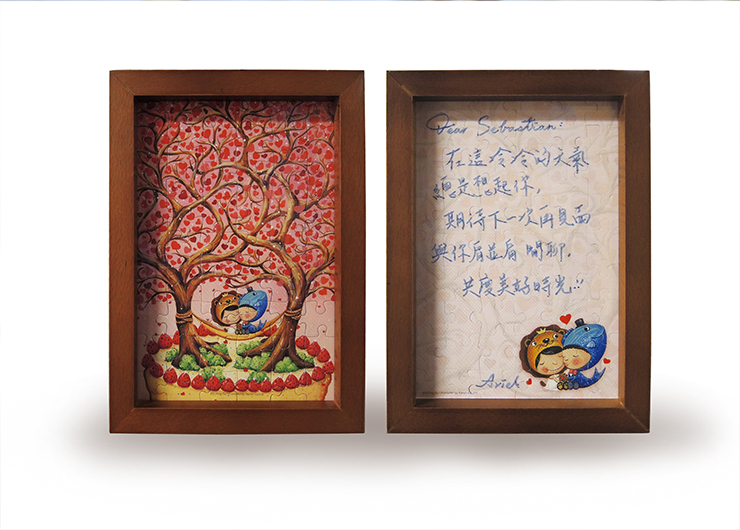 Dear Sebastian:
在這冷冷的天氣
總是想起你,
期待下一次再見面
與你肩並肩 閒聊,
共度美好時光!!
Ariel